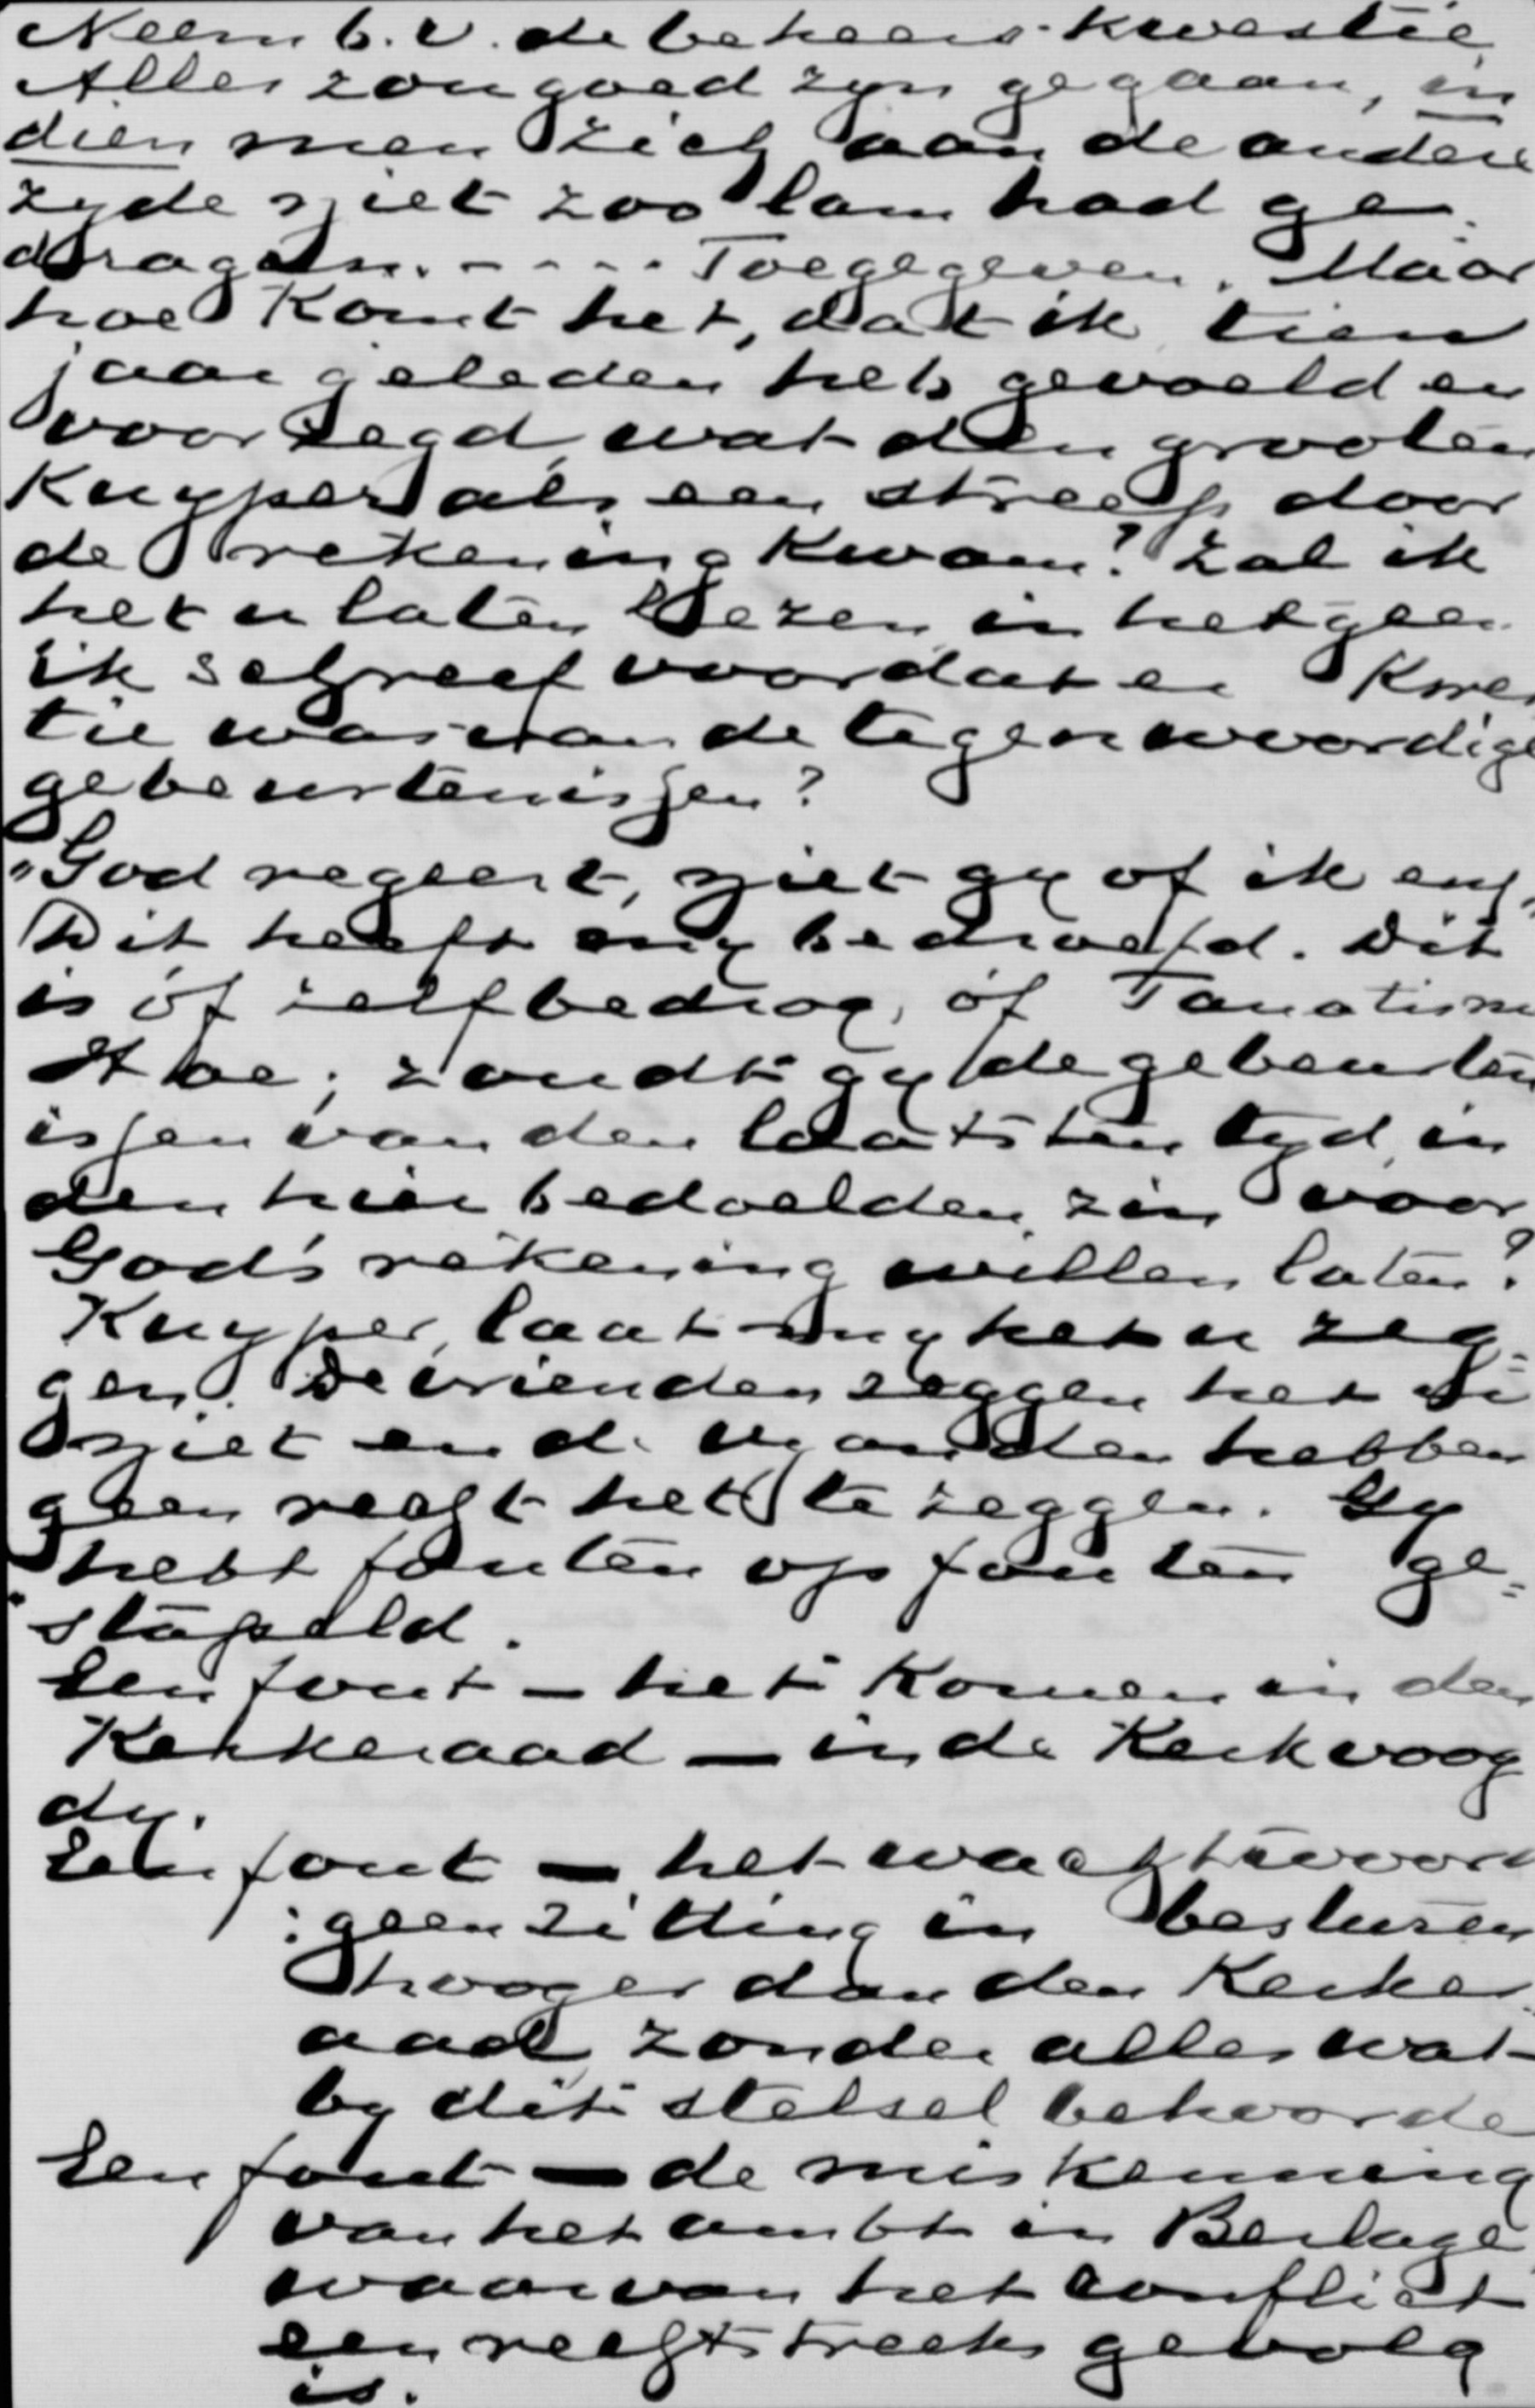 Neem b.v. de beheers-kwestie
Alles zou goed zyn gegaan, in
dien men zich aan de andere
zyde niet zoo lam had ge
dragen. - - - - Toegegeven. Maar
hoe komt het, dat ik tien
jaar geleden heb gevoeld en
voorzegd, wat den grooten
Kuyper als een streep door
de rekening kwam? Zal ik
het u laten lezen in hetgeen
ik schreef voordat er kwes
tie was van de tegenwoordige
gebeurtenissen?
"God regeert, niet gy of ik enz,
Dit heeft my bedroefd. Dit
is óf zelfbedrog, óf Fanatisme
Hoe; zoudt gy de gebeurten
issen van den laatsten tyd, in
den hier bedoelden zin voor
God's rekening willen laten?
Kuyper, laat my het u zeg=
gen. De vrienden zeggen het U
niet en de vyanden hebben
geen recht het te zeggen. Gy
hebt fouten op fouten ge=
stapeld.
Een fout - het komen in den
Kerkeraad - in de Kerkvoog
dy.
Een fout - het wachtwoord
: geen zitting in besturen
hooger dan den Kerker
aad, zonder alles wat
by dit stelsel behoorde
Een fout - de miskenning
van het ambt in Berlage
waarvan het conflict
een rechtstreeks gevolg
is.